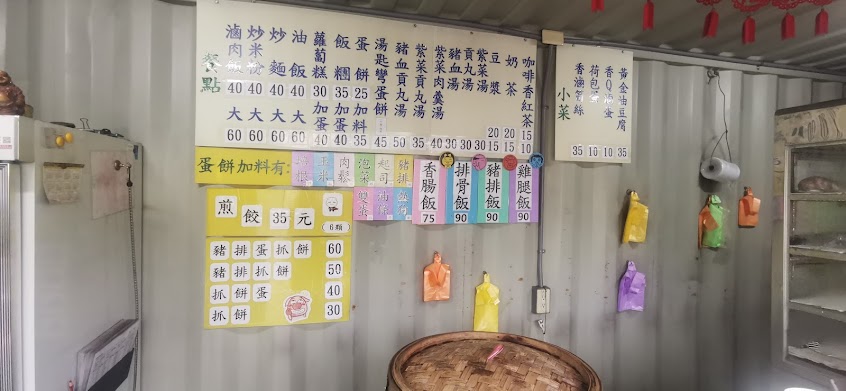 餐點
滷肉飯 40 大 60
炒米粉 40 大 60
炒麵 40 大 60
油飯 40 大 60
蘿蔔糕 30 加蛋 40
飯糰 35 加蛋
蛋餅 25 加料 35
湯匙彎蛋餅 45
豬血貢丸湯 50
紫菜貢丸湯 35
紫菜肉羹湯 40
豬血湯 30
貢丸湯 30
紫菜湯 30
豆漿 20 15
奶茶 20 15
咖啡香紅茶 15 10
小菜
香滷筍絲 35
荷包蛋 10
香Q滷蛋 10
黃金油豆腐 35
蛋餅加料有:
玉米
肉鬆
泡菜
起司
豬排
香腸飯 75
排骨飯 90
豬排飯 90
雞腿飯 90
煎餃35元
(6顆)
豬排蛋抓餅 60
豬排抓餅 50
抓餅蛋 40
抓餅 30